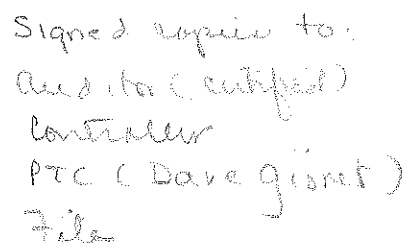 Signed copies to:
Auditor (certified)
Controller
PTC (Dave
File